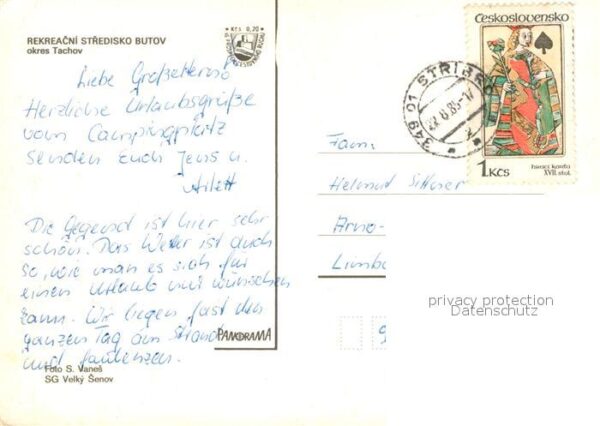 REKREAČNÍ STŘEDISKO BUTOV
okres Tachov
Kčs 0,20
Liebe
Herzliche Urlaubsgrüße
vom Campingplatz
senden Euch Jens u.
Arlett
Die Gegend ist hier sehr
schön. Das Wetter ist auch
so, wie man es sich für
einen Urlaub nur wünschen
kann. Wir liegen fast den
ganzen Tag am Strand
und faulenzen.
PANORAMA
Foto S. Vaneš
SG Velký Šenov
Československo
349 01 STŘÍBRO
1 Kčs
hrací karta
XVII. stol.
Fam.
Helmut
Arno-
Limba
privacy protection
Datenschutz
9